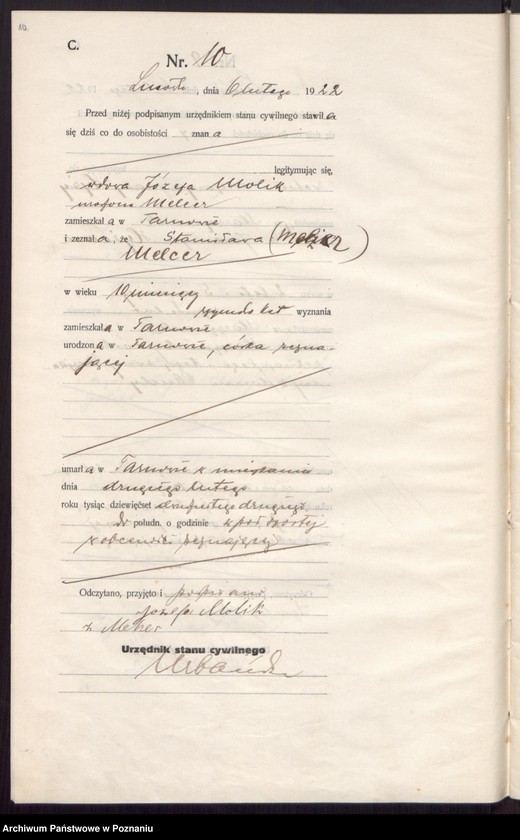 10.
C.
Nr. 10
Lusowo, dnia 6 lutego 1922
Przed niżej podpisanym urzędnikiem stanu cywilnego stawiła
się dziś co do osobistości znana
legitymując się,
wdowa Józefa Molik
Melcer
zamieszkała w Tarnowie
i zeznała, że Stanisława (Melzer)
Melcer
w wieku 10 miesięcy
rzymsko kat wyznania
zamieszkała w Tarnowie
urodzona w Tarnowie, córka zezna-
jącej
umarła w Tarnowie w mieszkaniu
dnia drugiego lutego
roku tysiąc dziewięćset dwudziestego drugiego
połudn. o godzinie
w obecności zeznającej
Odczytano, przyjęto i podpisano
Józefa Molik
z Melcer
Urzędnik stanu cywilnego
Urbański
Archiwum Państwowe w Poznaniu